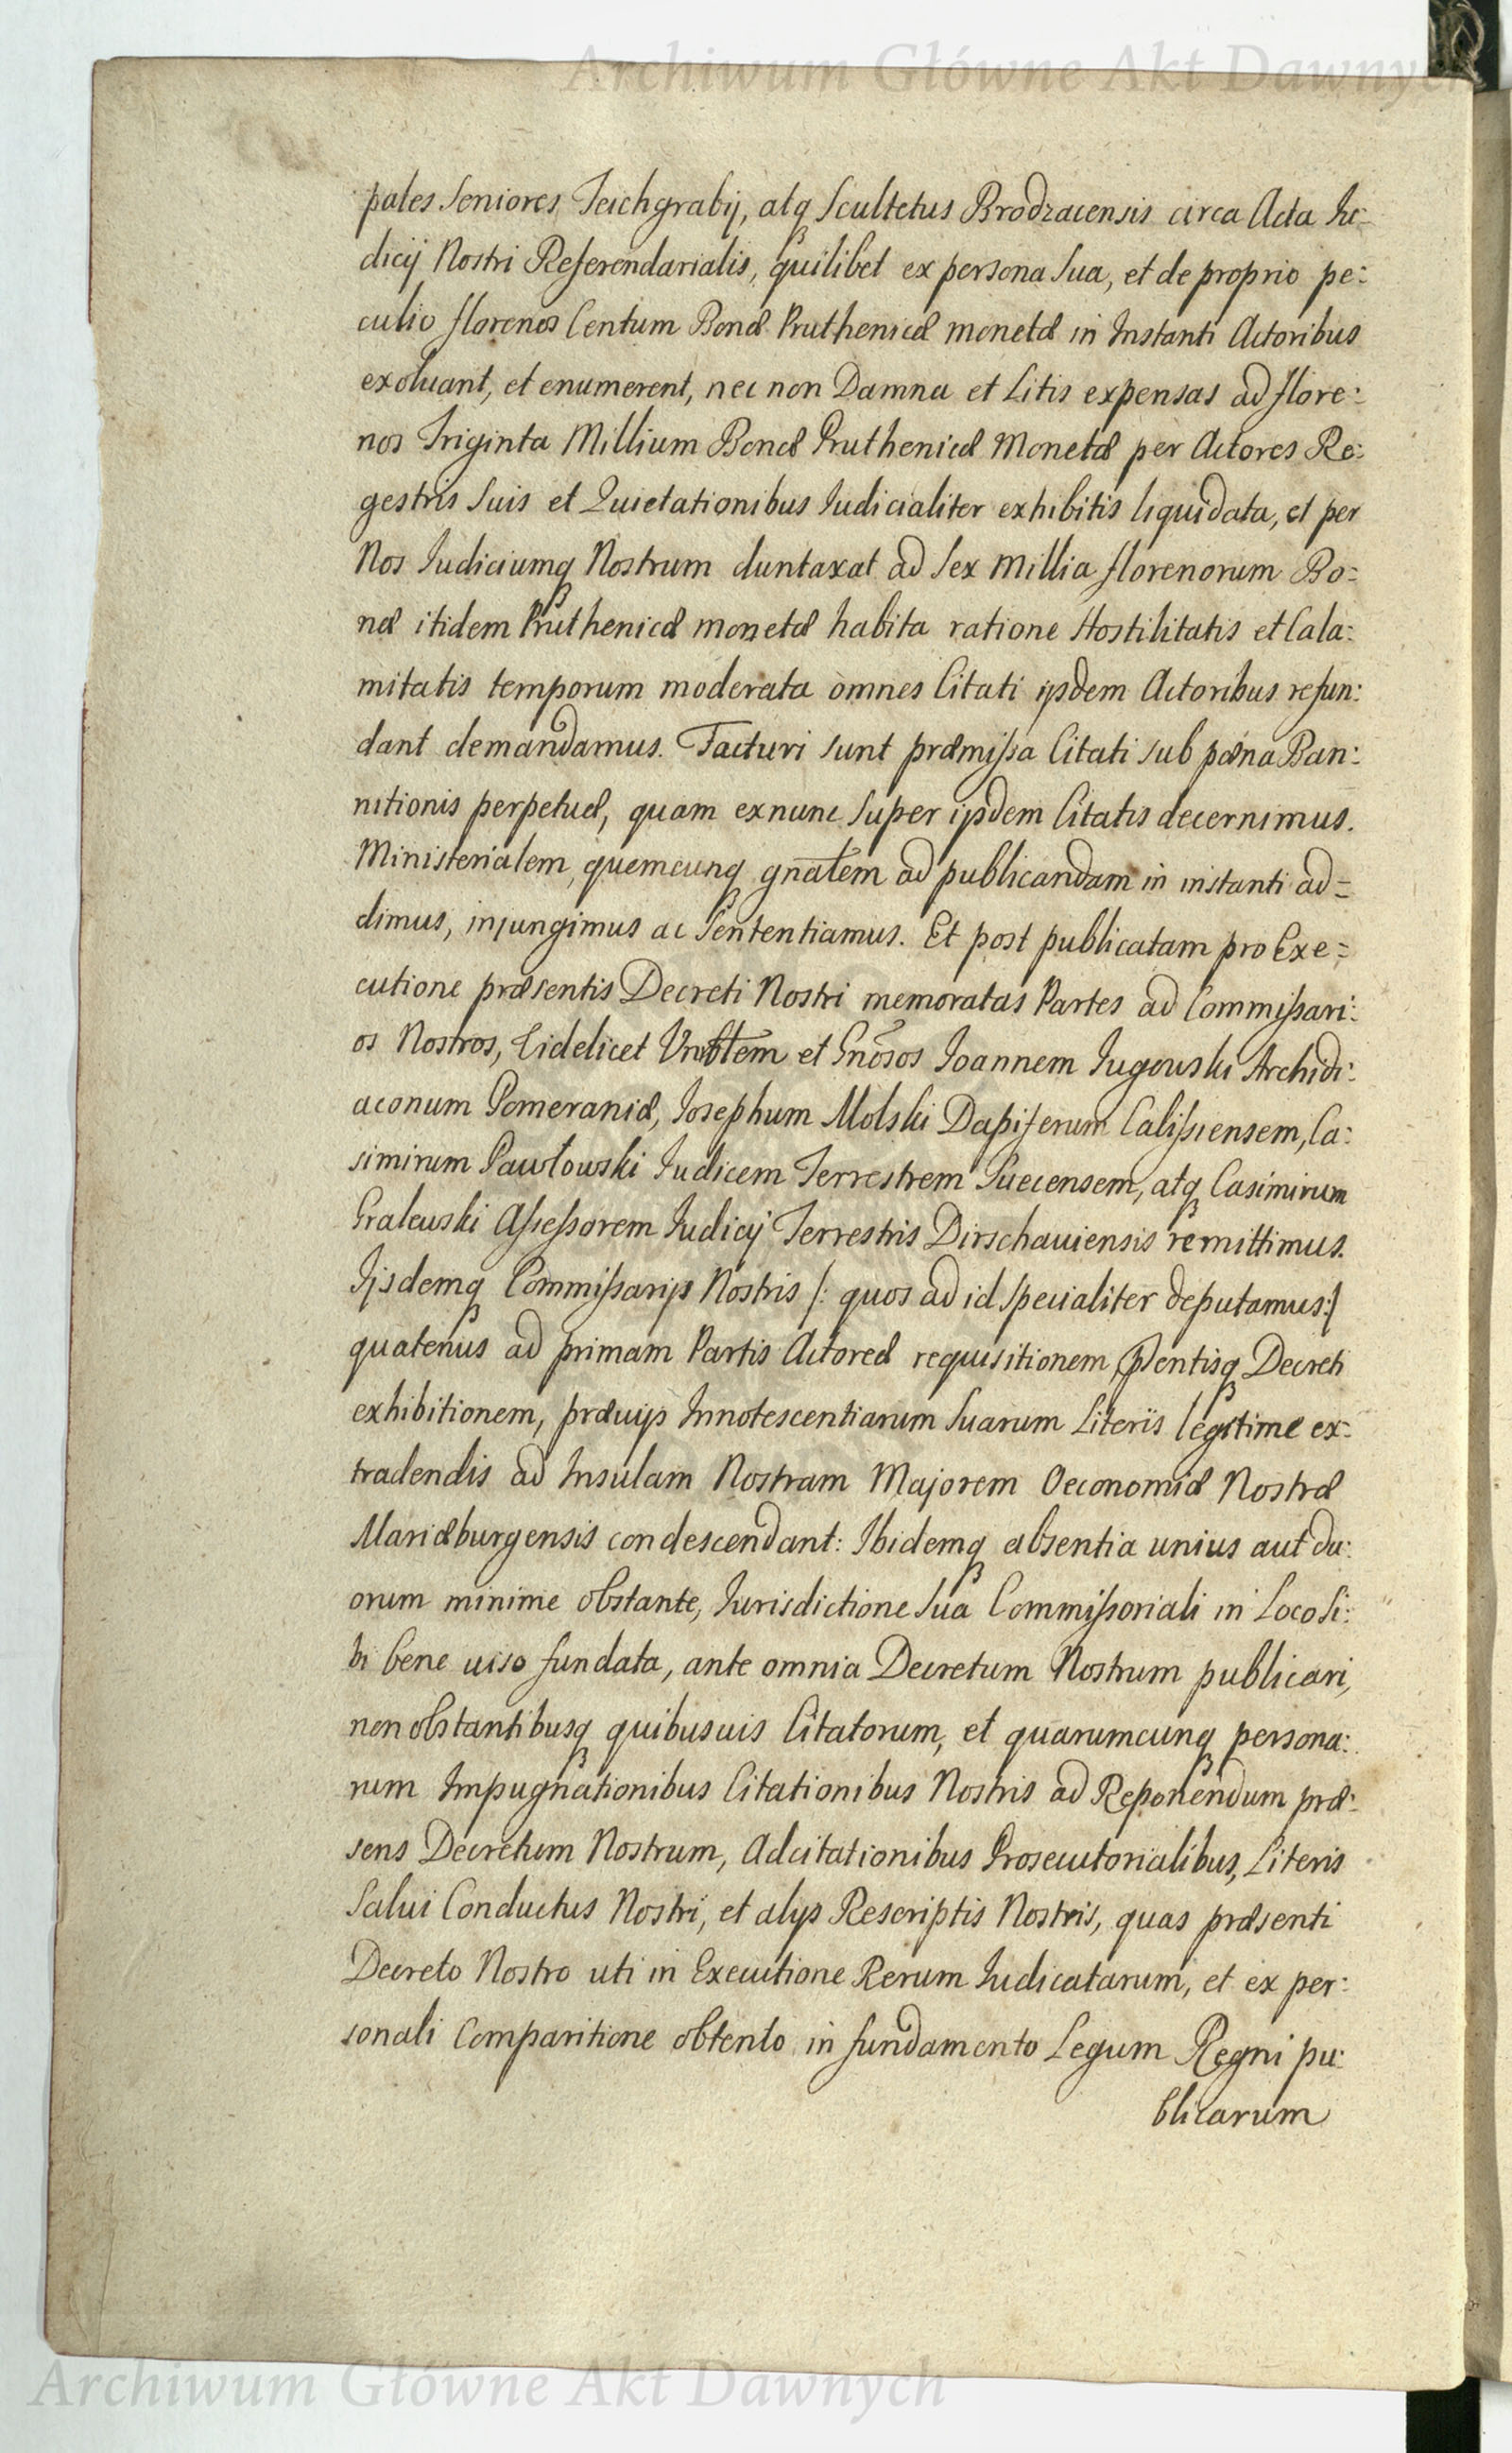 Archiwum Główne Akt Dawnych
pales Seniores Teichgrabij, atq Scultetus Brodzacensis circa Acta Iu:
dicij Nostri Referendarialis, quilibet ex persona Sua, et de proprio pe:
culio florenos Centum Bonæ Pruthenicæ monetæ in Instanti Actoribus
exoluant, et enumerent, nec non Damna et Litis expensas ad flore:
nos Triginta Millium Bonæ Pruthenicæ Monetæ per Actores Re:
gestris Suis et Quietationibus Iudicialiter exhibitis liquidata, et per
Nos Iudiciumq Nostrum duntaxat ad Sex Millia florenorum Bo=
næ itidem Pruthenicæ monetæ habita ratione Hostilitatis et Cala:
mitatis temporum moderata omnes Citati ijsdem Actoribus refun:
dant demandamus. Facturi sunt præmissa Citati sub pæna Ban:
nitionis perpetuæ, quam exnunc Super ijsdem Citatis decernimus.
Ministerialem quemcunq gnãlem ad publicandam in instanti ad=
dimus, injungimus ac Sententiamus. Et post publicatam pro Exe=
cutione præsentis Decreti Nostri memoratas Partes ad Commissari:
os Nostros, Videlicet et Gnõsos Ioannem Iugowski Archidi:
aconum Pomeraniæ, Iosephum Molski Dapiferum Calissiensem, Ca:
simirum Pawłowski Iudicem Terrestrem Suecensem, atq Casimirum
Gralewski Assessorem Iudicij Terrestris Dirschauiensis remittimus.
Ijsdemq Commissarijs Nostris /: quos ad id specialiter deputamus:/
quatenus ad primam Partis Actoreæ requisitionem, pſentisq Decreti
exhibitionem, præuijs Innotescentiarum Suarum Literis legitime ex:
tradendis ad Insulam Nostram Majorem Oeconomiæ Nostræ
Mariæburgensis condescendant: Ibidemq absentia unius aut du:
orum minime obstante, Iurisdictione Sua Commissoriali in Loco Si:
bi bene uiso fundata, ante omnia Decretum Nostrum publicari,
non obstantibusq quibusuis Citatorum, et quarumcunq persona:
rum Impugnationibus Citationibus Nostris ad Reponendum præ:
sens Decretum Nostrum, Adcitationibus Prosecutorialibus, Literis
Salui Conductus Nostri, et alijs Rescriptis Nostris, quas præsenti
Decreto Nostro uti in Executione Rerum Iudicatarum, et ex per:
sonali Comparitione obtento in fundamento Legum Regni pu:
blicarum
Archiwum Główne Akt Dawnych